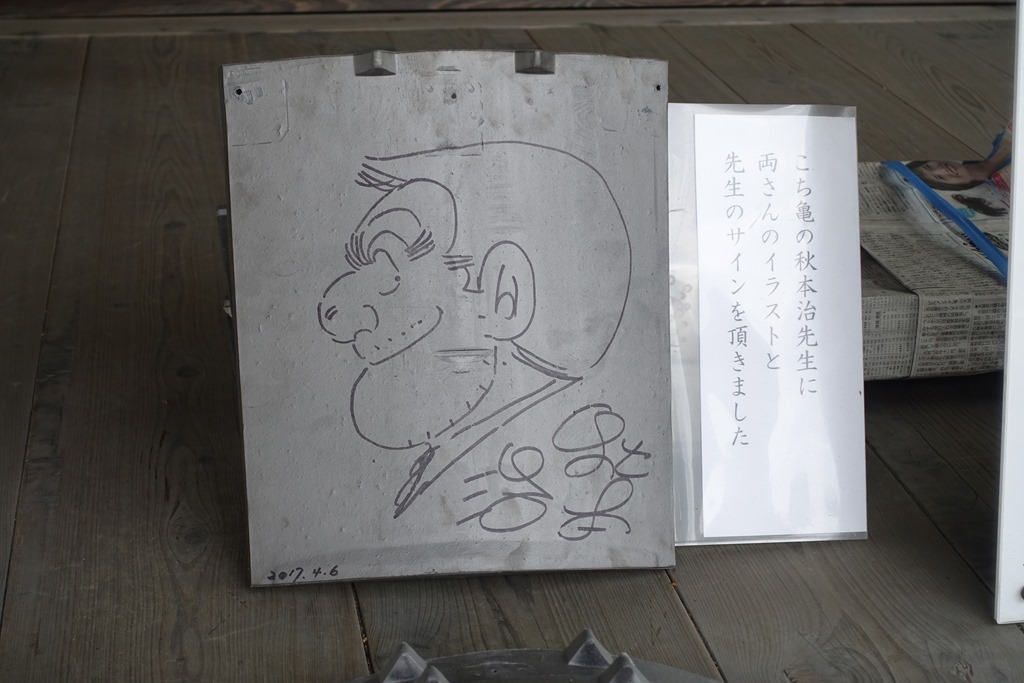 こち亀の秋本治先生に
両さんのイラストと
先生のサインを頂きました
2017.4.6